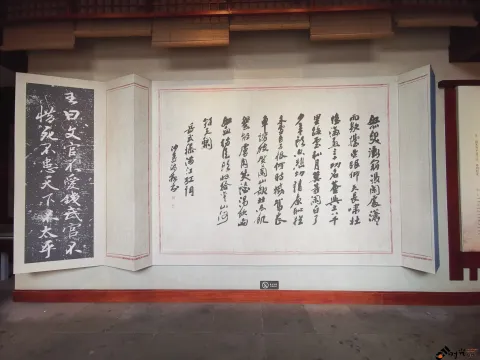 怒髮衝冠憑闌處瀟
雨歇擡望眼仰天長嘯壯
懷激烈三十功名塵與土八千
里路雲和月莫等閑白了
少年頭空悲切靖康恥猶
未雪臣子恨何時滅駕長
車踏破賀蘭山缺壯志飢
餐胡虜肉笑談渴飲匈
奴血待從頭收拾舊山河
朝天闕
岳武穆滿江紅詞
王曰文官不愛錢武官不
惜死不患天下不太平